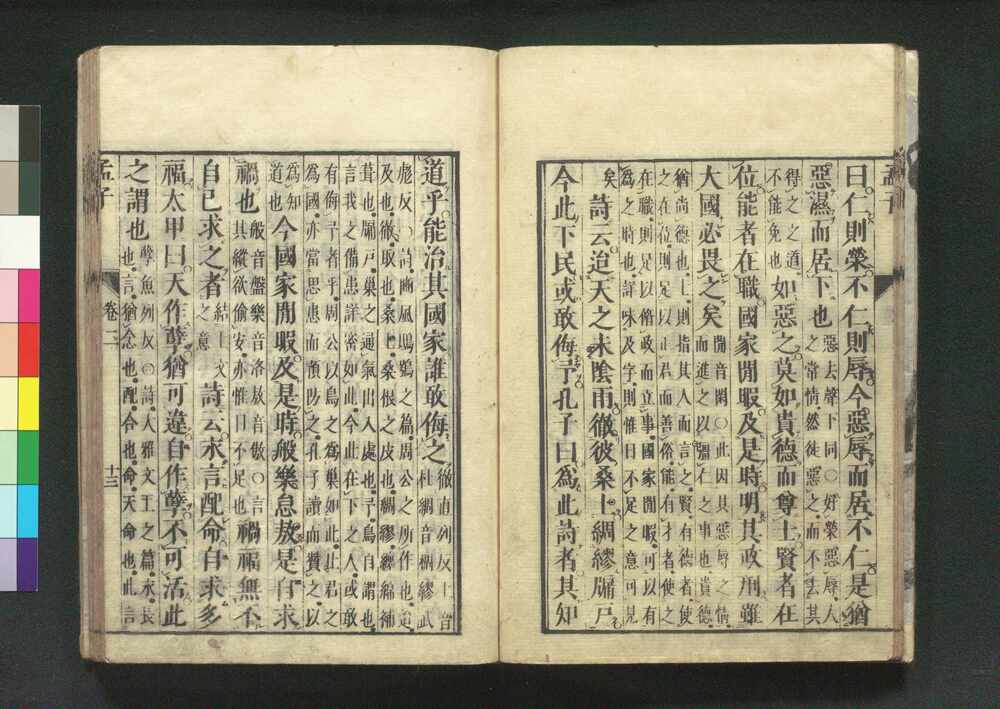 孟子
曰仁則榮不仁則辱今惡辱而居不仁是猶
惡濕而居下也
惡去聲下同○好榮惡辱人
之常情然徒惡之而不去其
得之之道
不能免也
如惡之莫如貴德而尊士賢者在
位能者在職國家閒暇及是時明其政刑雖
大國必畏之矣
閒音閑○此因其惡辱之情
而進之以彊仁之事也貴德
猶尚德也士則指其人而言之賢有德者使
之在位則足以正君而善俗能有才者使之
在職則足以脩政而立事國家閒暇可以有
為之時也詳味及字則惟日不足之意可見
矣
詩云迨天之未陰雨徹彼桑土綢繆牖戶
今此下民或敢侮予孔子曰為此詩者其知
道乎能治其國家誰敢侮之
徹直列反土音
杜綢音稠繆武
彪反○詩豳風鴟鴞之篇周公之所作也迨
及也徹取也桑土桑根之皮也綢繆纏綿補
葺也牖戶巢之通氣出入處也予鳥自謂也
言我之備患詳密如此今此在下之人或敢
有侮予者乎周公以鳥之為巢如此比君之
為國亦當思患而預防之孔子讀而贊之以
為知
道也
今國家閒暇及是時般樂怠敖是自求
禍也
般音盤樂音洛敖音傲○言
其縱欲偷安亦惟日不足也
禍福無不
自己求之者
結上文
之意
詩云永言配命自求多
福太甲曰天作孽猶可違自作孽不可活此
之謂也
孽魚列反○詩大雅文王之篇永長
也言猶念也配合也命天命也此言
孟子
卷二
十三